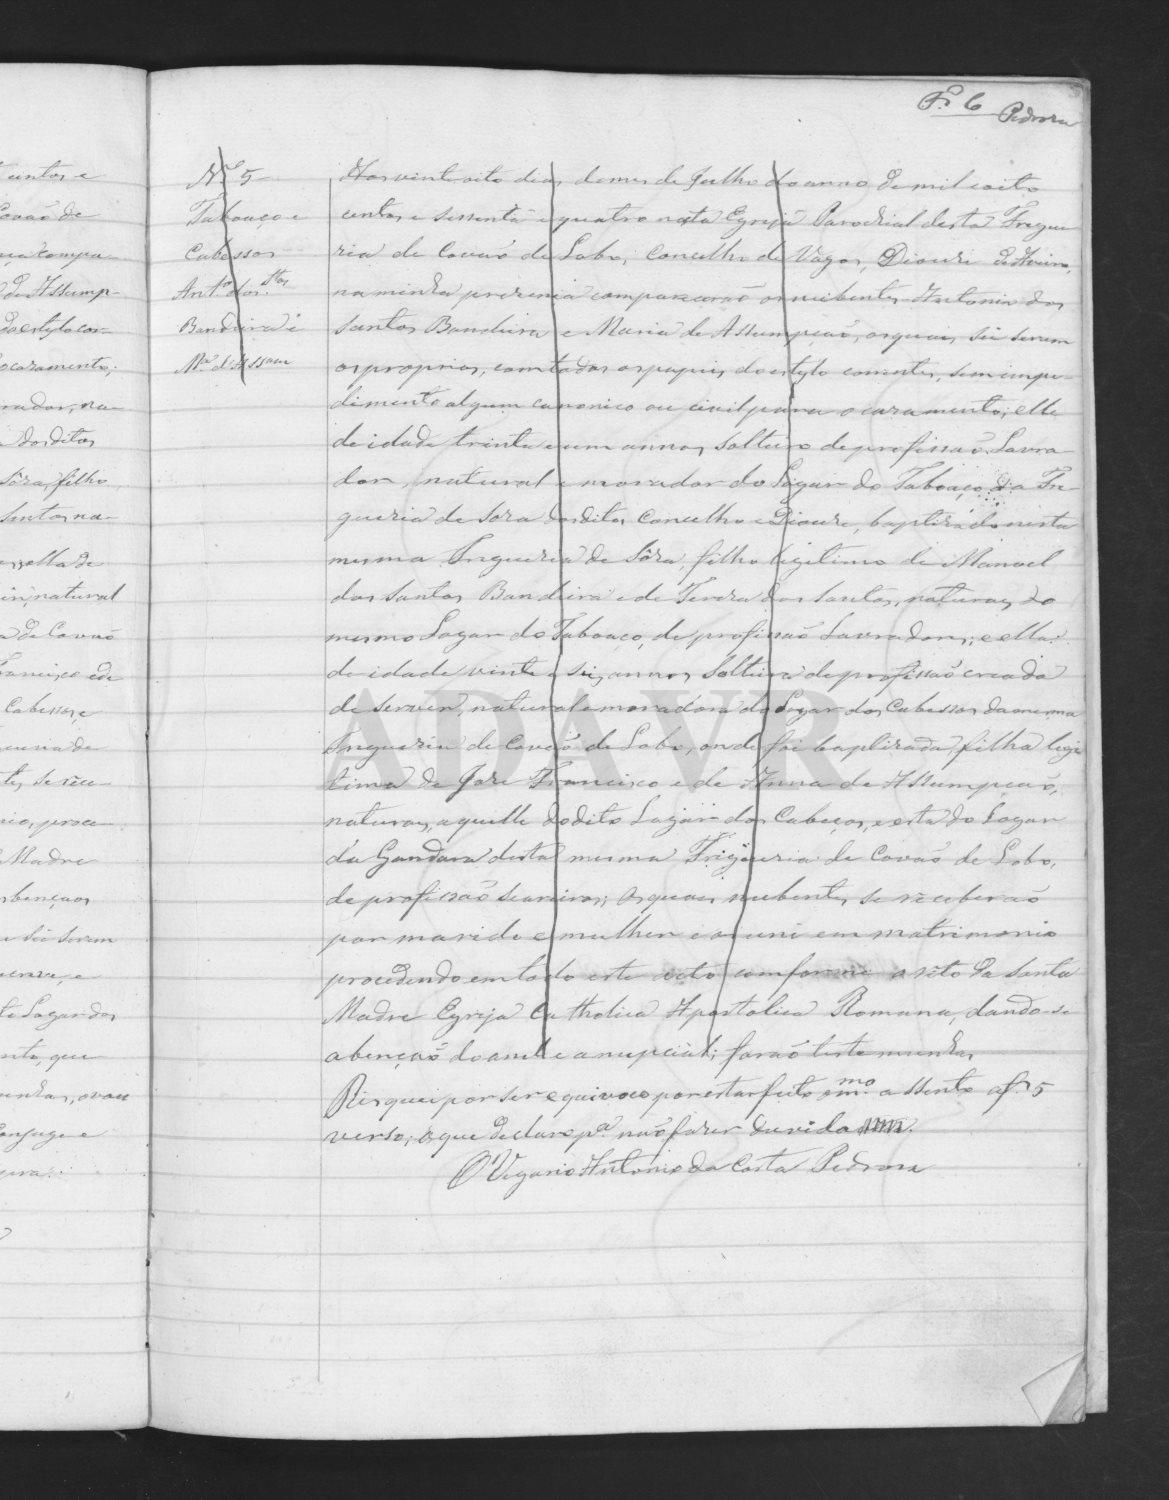 F. 6 Pedroza
untos e
Covaõ de
de Assump-
do estylo cor-
ocazamento;
rador, na-
dos ditos
Sôza, filho
Santos, na-
ella de
natural
a de Covaõ
Francisco e de
Cabessos e
gueria de
tes se rece-
nio, proce-
Madre
bençaos
e sei serem
Lugar dos
nto, que
Conjuge e
Nº 5
Tabouço e
Cabessos
Antº dos Stos
Bandeira e
Mª d'Assum
Aos vinte oito dias do mes de Julho do anno de mil e oito
centos e sessenta e quatro nesta Egreja Parochial desta Fregue-
zia de Covaõ de Lobo, Concelho de Vagos, Diocese de Aveiro,
na minha prezencia comparecerao os nubentes Antonio dos
Santos Bandeira e Maria de Assumpçaõ, os quaes sei serem
os proprios, com todos os papeis do estylo correntes, sem impe-
dimento algum canonico ou civil para o cazamento; elle
de idade trinta e um annos, solteiro de profissaõ Lavra-
dor, natural e morador do Lugar do Tabouço da Fre-
gueria de Soza dos ditos Concelho e Diocese, baptizado nesta
mesma Fregueria de Sôza, filho legitimo de Manoel
dos Santos Bandeira e de Tereza dos Santos, naturaes do
mesmo Lugar do Tabouço, de profissaõ Lavradores; e ella
de idade vinte e seis annos, Solteira de profissaõ creada
de servir, natural e moradora do Lugar dos Cabessos da mesma
Fregueria de Covaõ de Lobo, onde foi baptizada, filha legi-
tima de Joze Francisco e de Anna de Assumpçaõ,
naturaes, aquelle do dito Lugar dos Cabeços, e esta do Lugar
da Gandara desta mesma Fregueria de Covaõ de Lobo,
de profissaõ seareiros; os quaes nubentes se receberaõ
por marido e mulher e os uni em matrimonio
procedendo em todo este acto conforme o rito da Santa
Madre Egreja Catholica Apostolica Romana, dando-se
a bençaõ do anel e a nupcial; foraõ testemunhas
Risquei por ser equivoco por estar feito o mmo assento a f. 5
verso; o que declaro pª naõ fazer duvida
O Vigario Antonio da Costa Pedroza
ADAVR